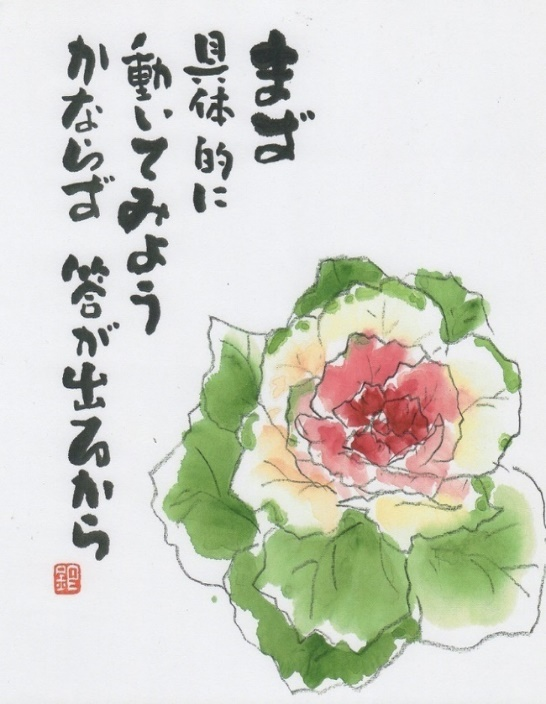 まず
具体的に
動いてみよう
かならず 答が出るから